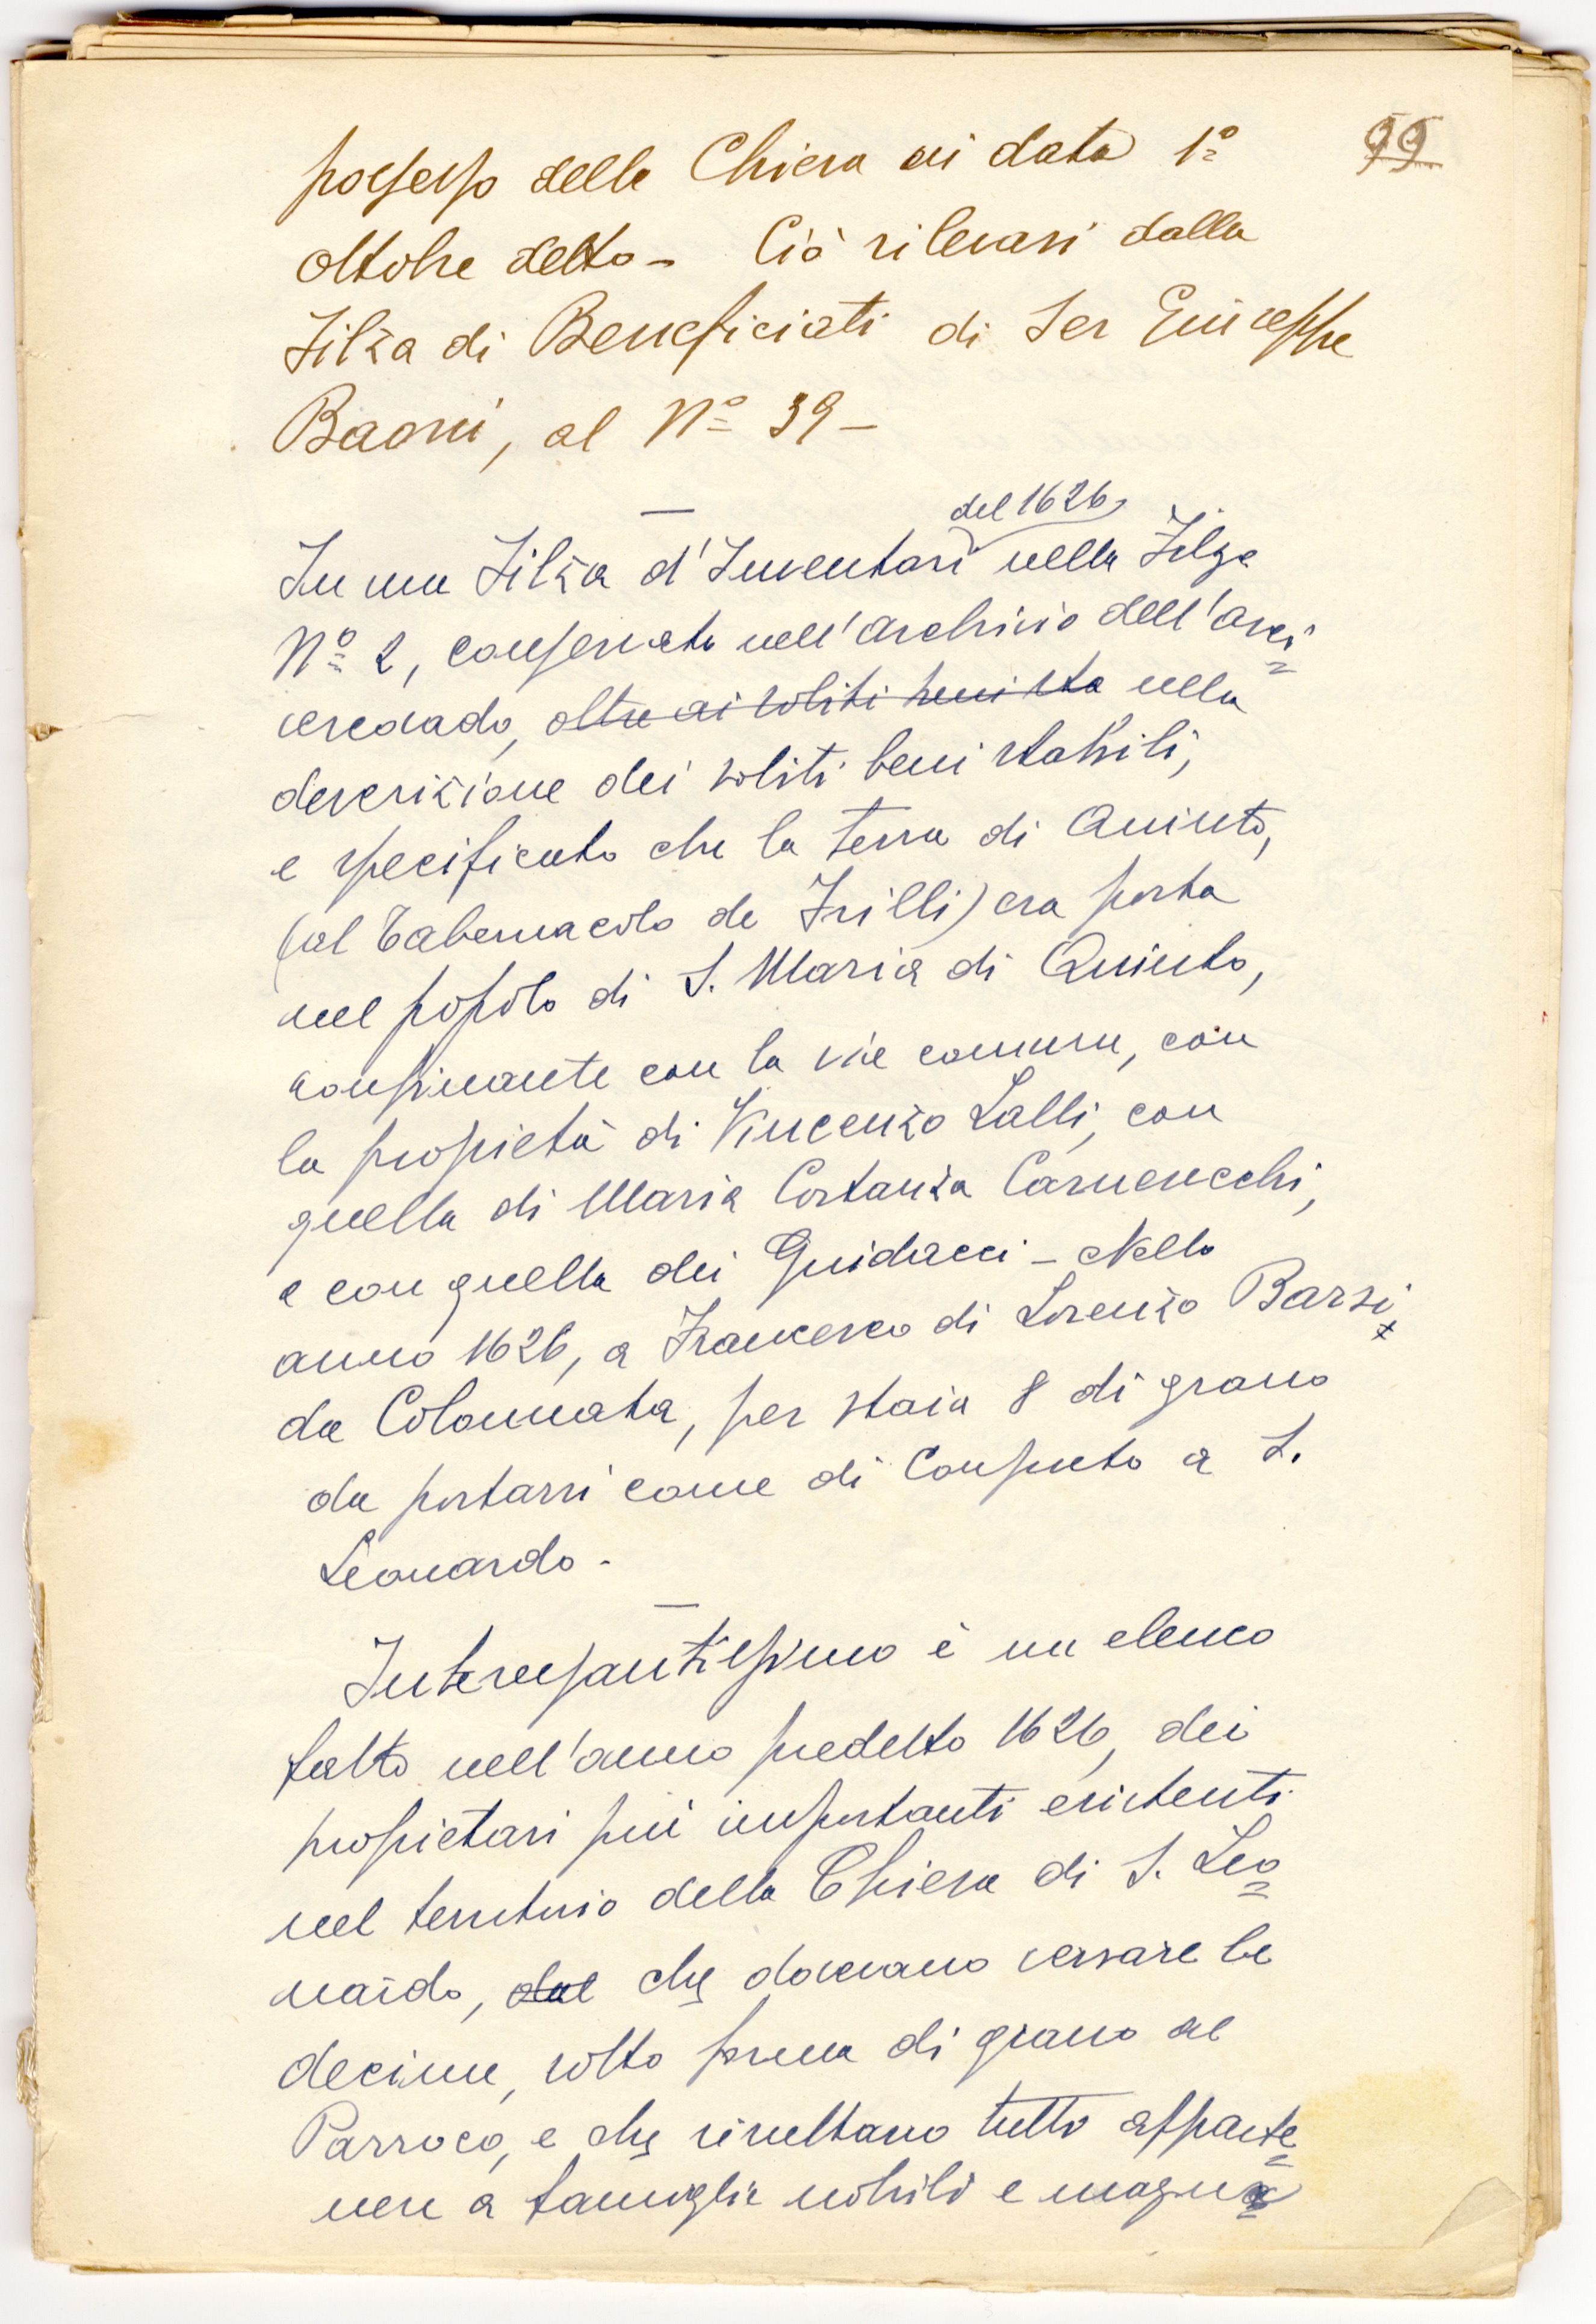 99
possesso della Chiesa in data 1º
Ottobre detto - Ciò rilevasi dalla
Filza di Beneficiati di Ser Giuseppe
Baoni, al Nº 39 -
del 1626
In una Filza d'Inventari nella Filza
Nº 2, conservata nell'archivio dell'arci=
vescovado, oltre ai soliti beni sta nella
descrizione dei soliti beni stabili,
e specificato che la terra di Quinto,
(al Tabernacolo de Frilli) era posta
nel popolo di S. Maria di Quinto,
confinante con la via comune, con
la propietà di Vincenzo Lalli, con
quella di Maria Costanza Carnesecchi,
e con quella dei Guiducci - Nello
anno 1626, a Francesco di Lorenzo Barsi
da Colonnata, per staia 8 di grano
da portarsi come di Consueto a S.
Leonardo -
Interessantissimo è un elenco
fatto nell'anno predetto 1626, dei
propietari più importanti esistenti
nel territorio della Chiesa di S. Leo=
nardo, dal che dovevano versare le
decime, sotto forma di grano al
Parroco, e che risultano tutto apparte=
nere a famiglie nobili e magna=